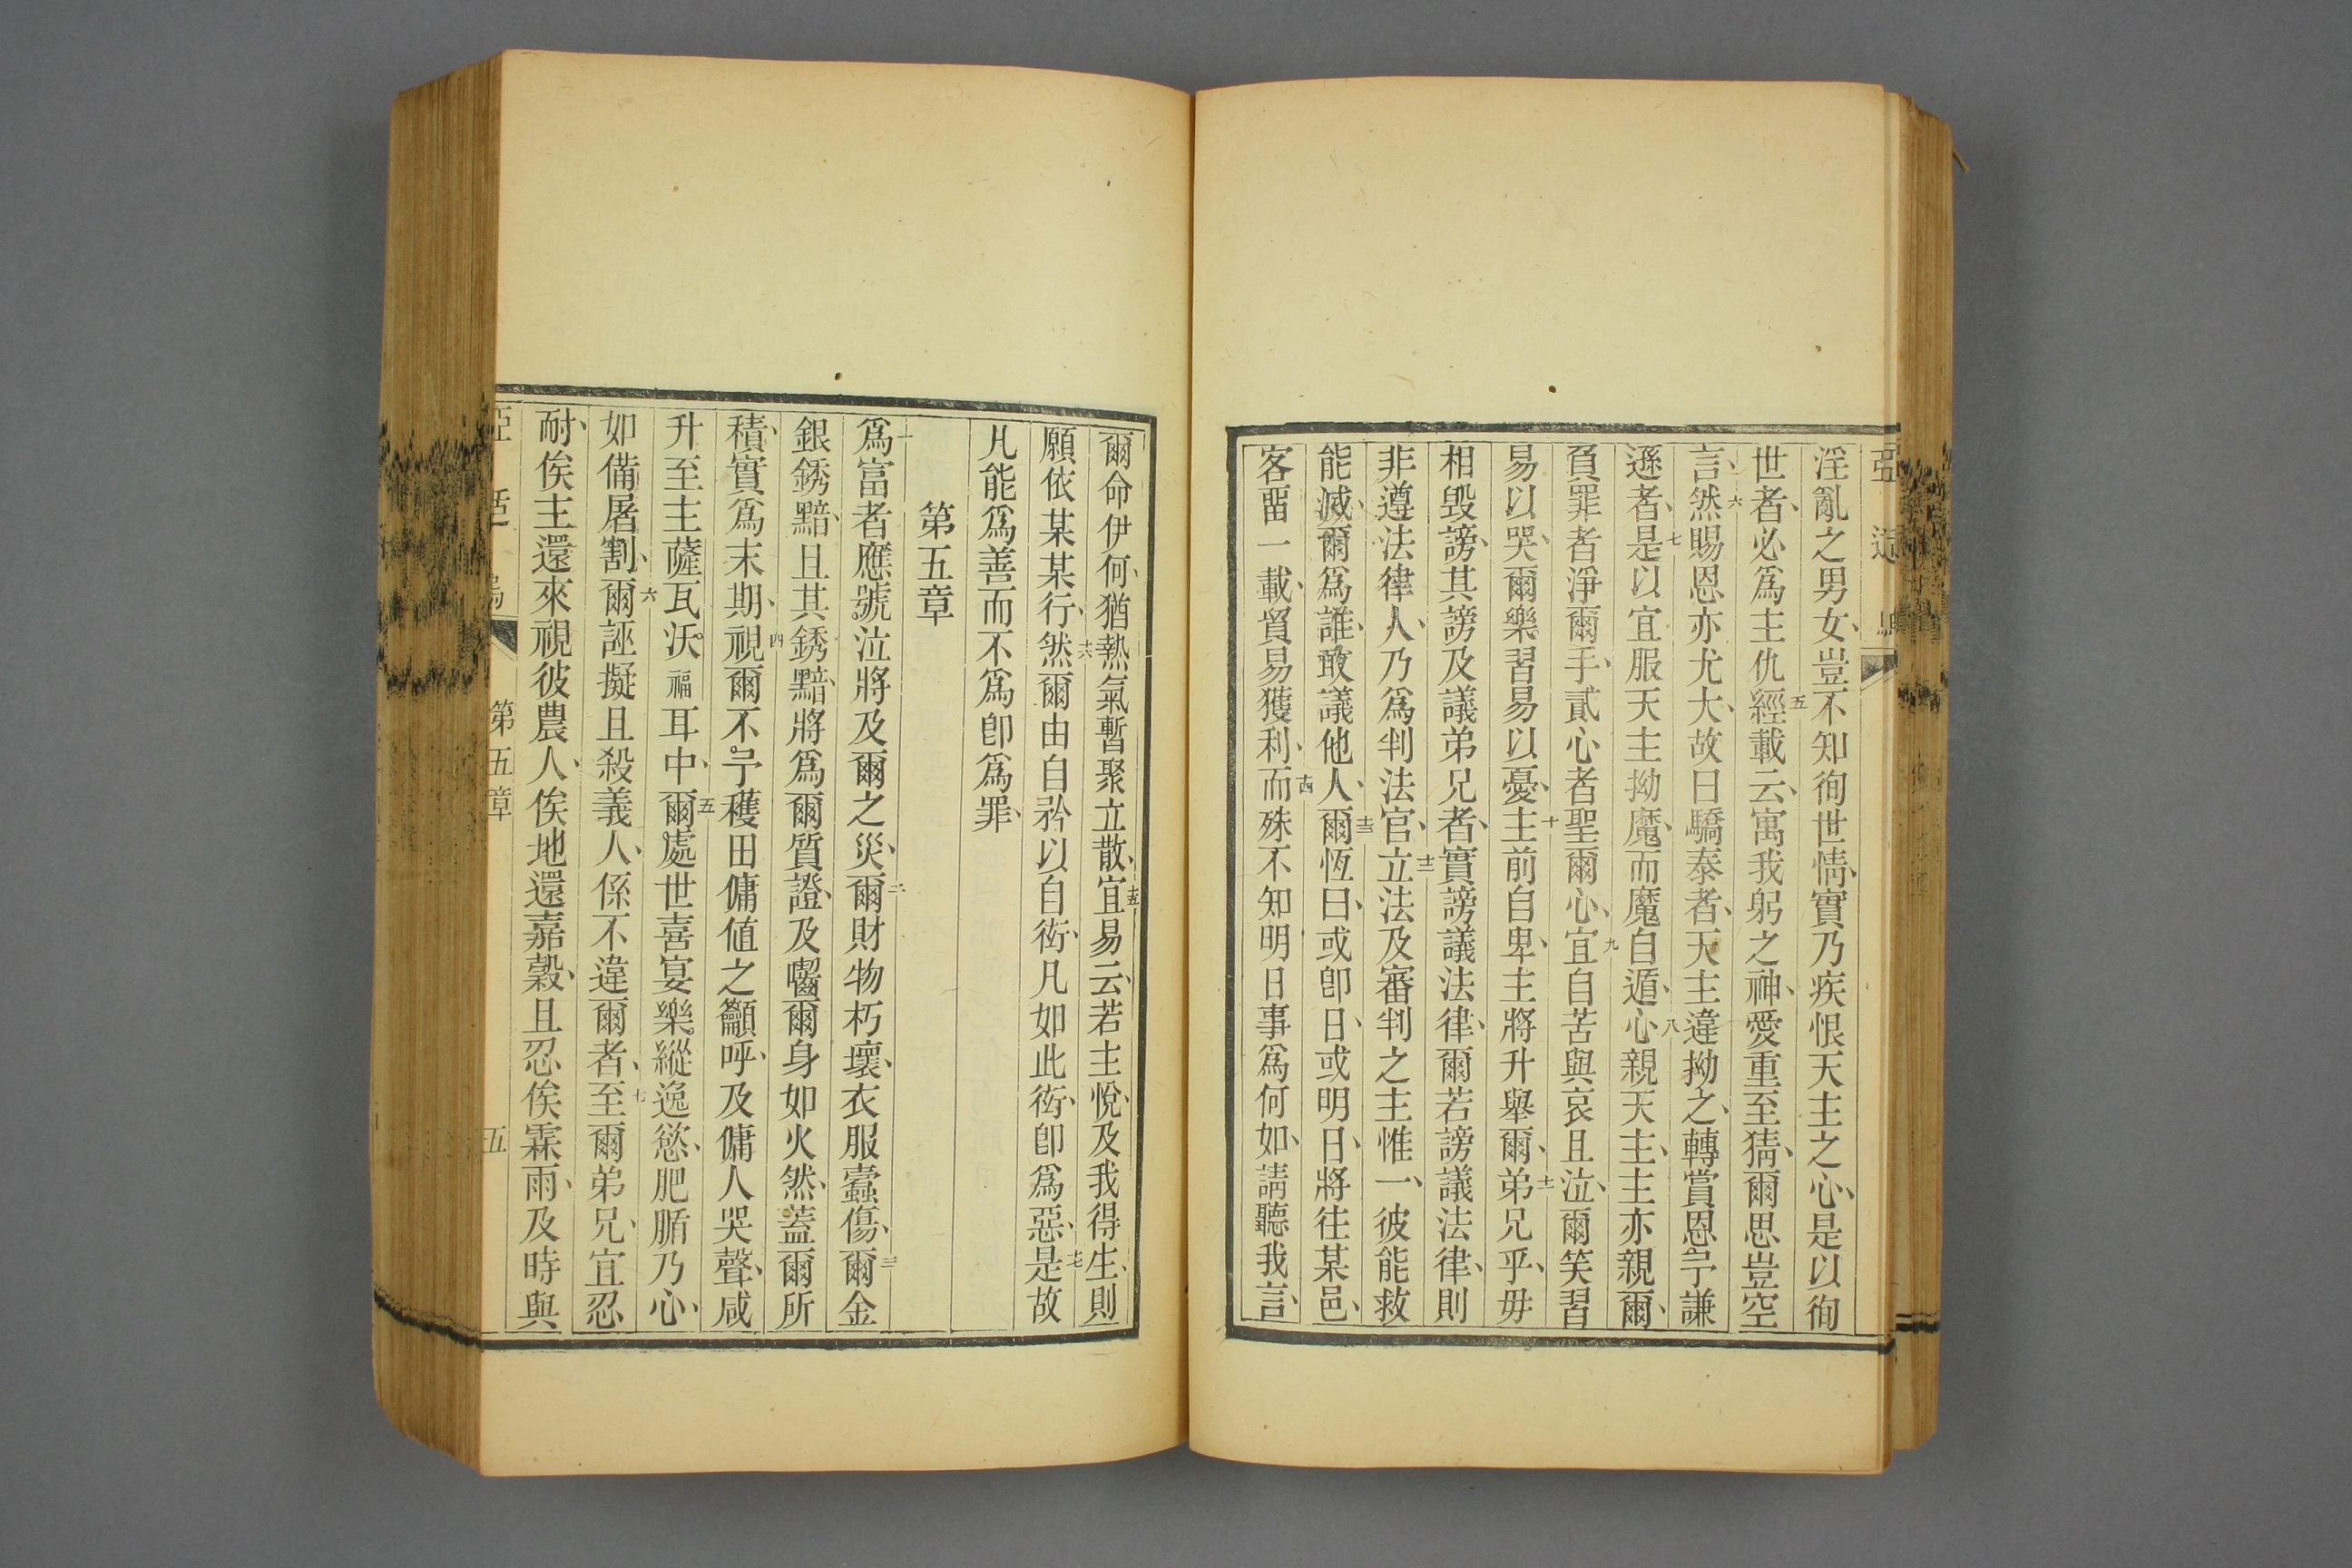 淫亂之男女、豈不知徇世情、實乃疾恨天主之心、是以徇
世者、必爲主仇五經載云、寓我躬之神、愛重至猜、爾思豈空
言、六然賜恩亦尤大、故曰驕泰者、天主違拗之、轉賞恩㝍謙
遜者、七是以宜服天主拗魔、而魔自遁、八心親天主、主亦親爾、
負罪者淨爾手、貳心者聖爾心、九宜自苦與哀且泣、爾笑習
易以哭、爾樂習易以憂、十主前自卑、主將升舉爾、十一弟兄乎、毋
相毀謗、其謗及議弟兄者、實謗議法律、爾若謗議法律、則
非遵法律人、乃爲判法官、十二立法及審判之主惟一、彼能救
能滅、爾爲誰、敢議他人、十三爾恆曰、或卽日、或明日、將往某邑、
客畱一載、貿易獲利、十四而殊不知明日事爲何如、請聽我言、
爾命伊何、猶熱氣暫聚立散、十五宜易云、若主悅、及我得生、則
願依某某行、十六然爾由自矜以自衒、凡如此衒、卽爲惡、十七是故
凡能爲善而不爲卽爲罪、
第五章
一爲富者應號泣將及爾之災、二爾財物朽壞、衣服蠹傷、三爾金
銀銹黯、且其銹黯、將爲爾質證、及嚙爾身如火然、蓋爾所
積、實爲末期、四視爾不㝍穫田傭値之籲呼、及傭人哭聲、咸
升至主薩瓦沃福耳中、五爾處世喜宴樂縱逸慾、肥腯乃心、
如備屠割、六爾誣擬且殺義人、係不違爾者、七至爾弟兄、宜忍
耐、俟主還來視彼農人、俟地還嘉穀、且忍俟霖雨、及時與
第五章
五